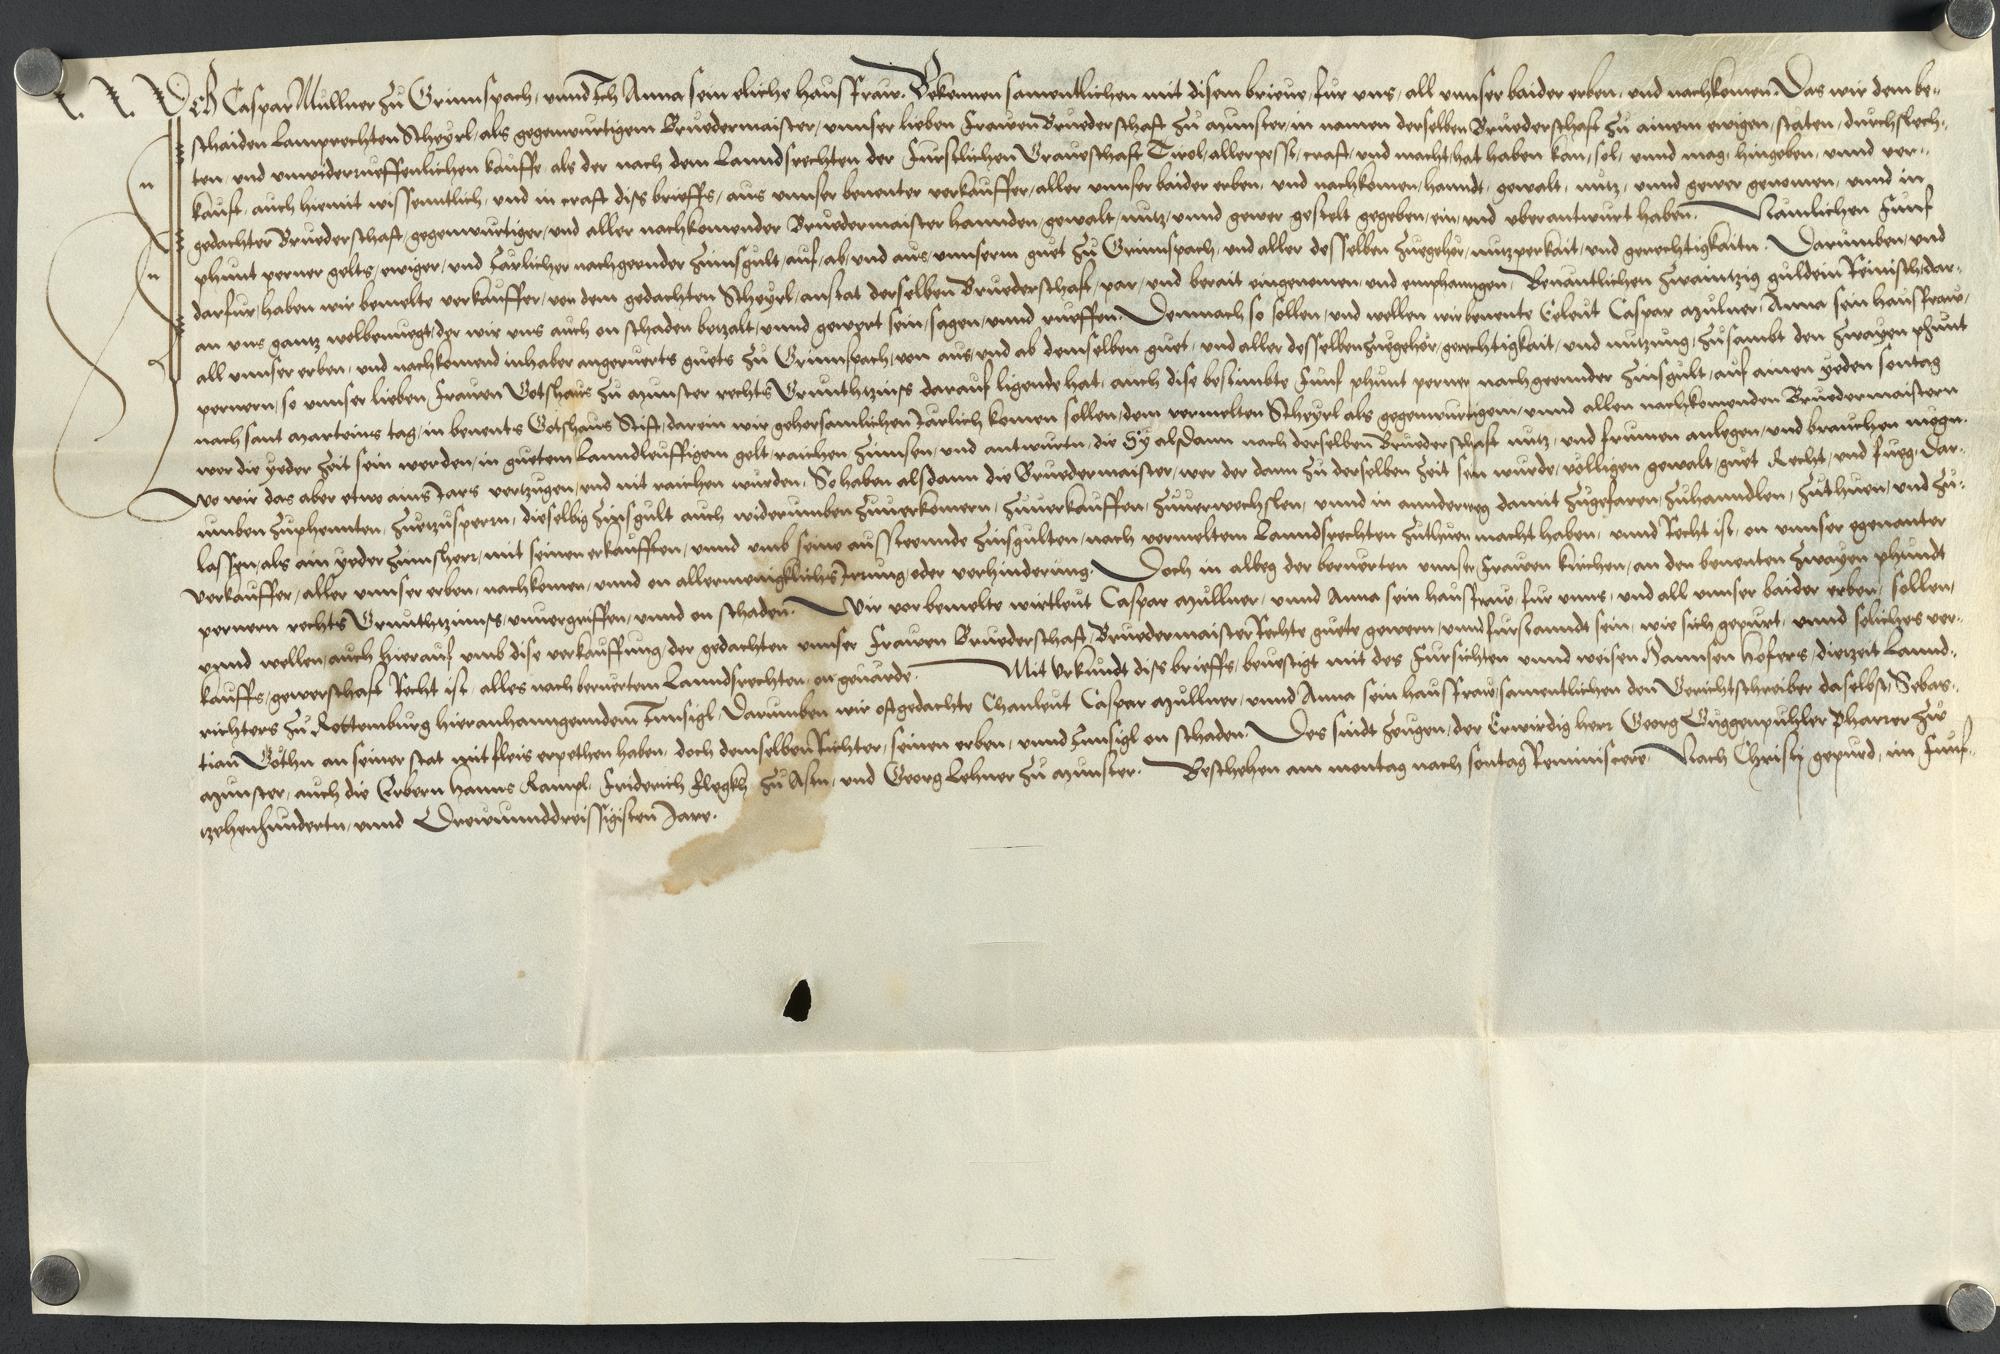 Ich Caspar Mullner zu Grinnspach, vnnd Ich Anna sein eliche hausfraw. Bekennen samentlichen mit disem brieue, fur vns, all vnnser baider erben, vnd nachkomen. Das wir dem be-
schaiden Lamprechten Scheyrl, als gegenwurtigem Bruedermaister, vnnser lieben Frauen Bruederschaft zu Munster, in namen derselben Bruederschaft zu ainem ewigen, stäten, durchslech-
ten, vnd vnwiderruefflichen kauffe, als der nach dem Lanndsrechten der Furstlichen Graueschaft Tirol, allerpesst, craft, vnd macht, hat haben kan, sol, vnnd mag, hingeben, vnnd ver-
kauft, auch hiemit wissenntlich, vnd in craft diss brieffs, aus vnnser benenter verkauffer, aller vnnser baider erben, vnd nachkomen, hanndt, gewalt, nutz, vnnd gewer genomen, vnnd in
gedachter Bruederschaft, gegenwurtiger, vnd aller nachkomender Bruedermaister hannden, gewalt, nutz, vnnd gewer gestelt gegeben, ein, vnd vberantwurt haben. Nämlichen Funf
phunt perner gelts, ewiger, vnd Järlicher nachgeender zinnsgult, auf, ab, vnd aus, vnnserm guet zu Grinnspach, vnd aller desselben zuegehör, nutzperkait, vnd gerechtigkaitn. Darumben, vnd
darfur, haben wir bemelte verkauffer, von dem gedachten Scheyrl, anstat derselben Bruederschaft, par, vnd berait eingenomen, vnd emphanngen, Benantlichen Zwaintzig guldein Reinisch, dar-
an vns gantz wolbenuegt, der wir vns auch on schaden betzalt, vnnd gewert sein, sagen, vnnd rueffen. Demnach so sollen, vnd wellen wir benente Eeleut Caspar Mulner, Anna sein hausfraw,
all vnnser erben, vnd nachkomend inhaber angeruerts guets zu Grinnspach, von aus, vnd ab demselben guet, vnd aller desselben zuegehör, gerechtigkait, vnd nutzung, zusambt den zwayen phunt
pernern, so vnnser lieben Frauen Gotshaus zu Munster rechts Grunthtzinss darauf ligende hat, auch dise bestimbte Funf phunt perner nachgeennder Zinsgult, auf ainen yeden sontag
nach sant Marteins tag, in benents Gotshaus Stift, darein wir gehorsamlichen Järlich komen sollen, dem vermelten Scheyrl als gegenwurtigem, vnnd allen nachkomenden Bruedermaistern
wer die yeder Zeit sein werden, in guetem Lanndleuffigem gelt, raichen zinnsen, vnd antwurtn, die Sy alsdann nach derselben Bruederschaft nutz, vnd frumen anlegen, vnd brauchen mögn.
Wo wir das aber etwo ains Jars vertzugen, vnd nit raichen wurden, So haben alsdann die Bruedermaister, wer der dann zu derselben Zeit sein wurde, völligen gewalt, guet Recht, vnd fueg, Dar-
umben zuphennten, zuetzusperrn, dieselbig Zinsgult auch widerumben zuuerkomern, zuuerkauffen, zuuerwechslen, vnnd in annderweg damit zugefaren, zuhanndlen, zuthuen, vnd zu-
lassen, als ain yeder Zinnsherr, mit seinen erkaufften, vnnd vmb seine aussteennde Zinsgulten, nach vermeltem Lanndsrechten zuthuen macht haben, vnnd Recht ist, on vnnser egenanter
verkauffer, aller vnnser erben, nachkomen, vnnd on allermenigklichs Irrung, oder verhinderung. Doch in albeg der beruerten vnnser Frauen kirchen, an den benenten zwayen phundt
pernern rechts Grunthtzinnss, vnuergriffen, vnnd on schaden. Wir vorbemelte wirtleut Caspar Mullner, vnnd Anna sein hausfraw, fur vnns, vnd all vnnser baider erben, sollen,
vnnd wellen, auch hierauf vmb dise verkauffung, der gedachten vnnser Frauen Bruederschaft, Bruedermaister Rechte guete gewern, vnnd furstanndt sein, wie sich gepurt, vnnd soliches ver-
kauffs, gewerschaft Recht ist, alles nach beruertem Lanndsrechten, on geuärde. Mit Vrkundt diss brieffs, beuestigt mit des Fursichten vnnd weisen Hannsen Hofers, dieczeit Lannd-
richters zu Rottemburg hieranhanngenndem Innsigl, Darumben wir oftgedachte Chanleut Caspar Mullner, vnnd Anna sein hausfraw, samentlichen den Gerichtschreiber daselbst, Sebas-
tian Göthn an seiner stat mit fleis erpethen haben, doch demselben Richter, seinen erben, vnnd Innsigl on schaden. Des sindt Zeugen, der Erwirdig herr Georg Guggenpuhler Pharrer zw
Munster, auch die Erbern Hanns Kampl, Friderich Flegkh zu Asm, vnd Georg Lehner zu Munster. Beschehen am montag nach sontag Reminiscere. Nach Christi gepurd, im Funf-
tzehenhundertn, vnnd Drewunnddreissigisten Jare.